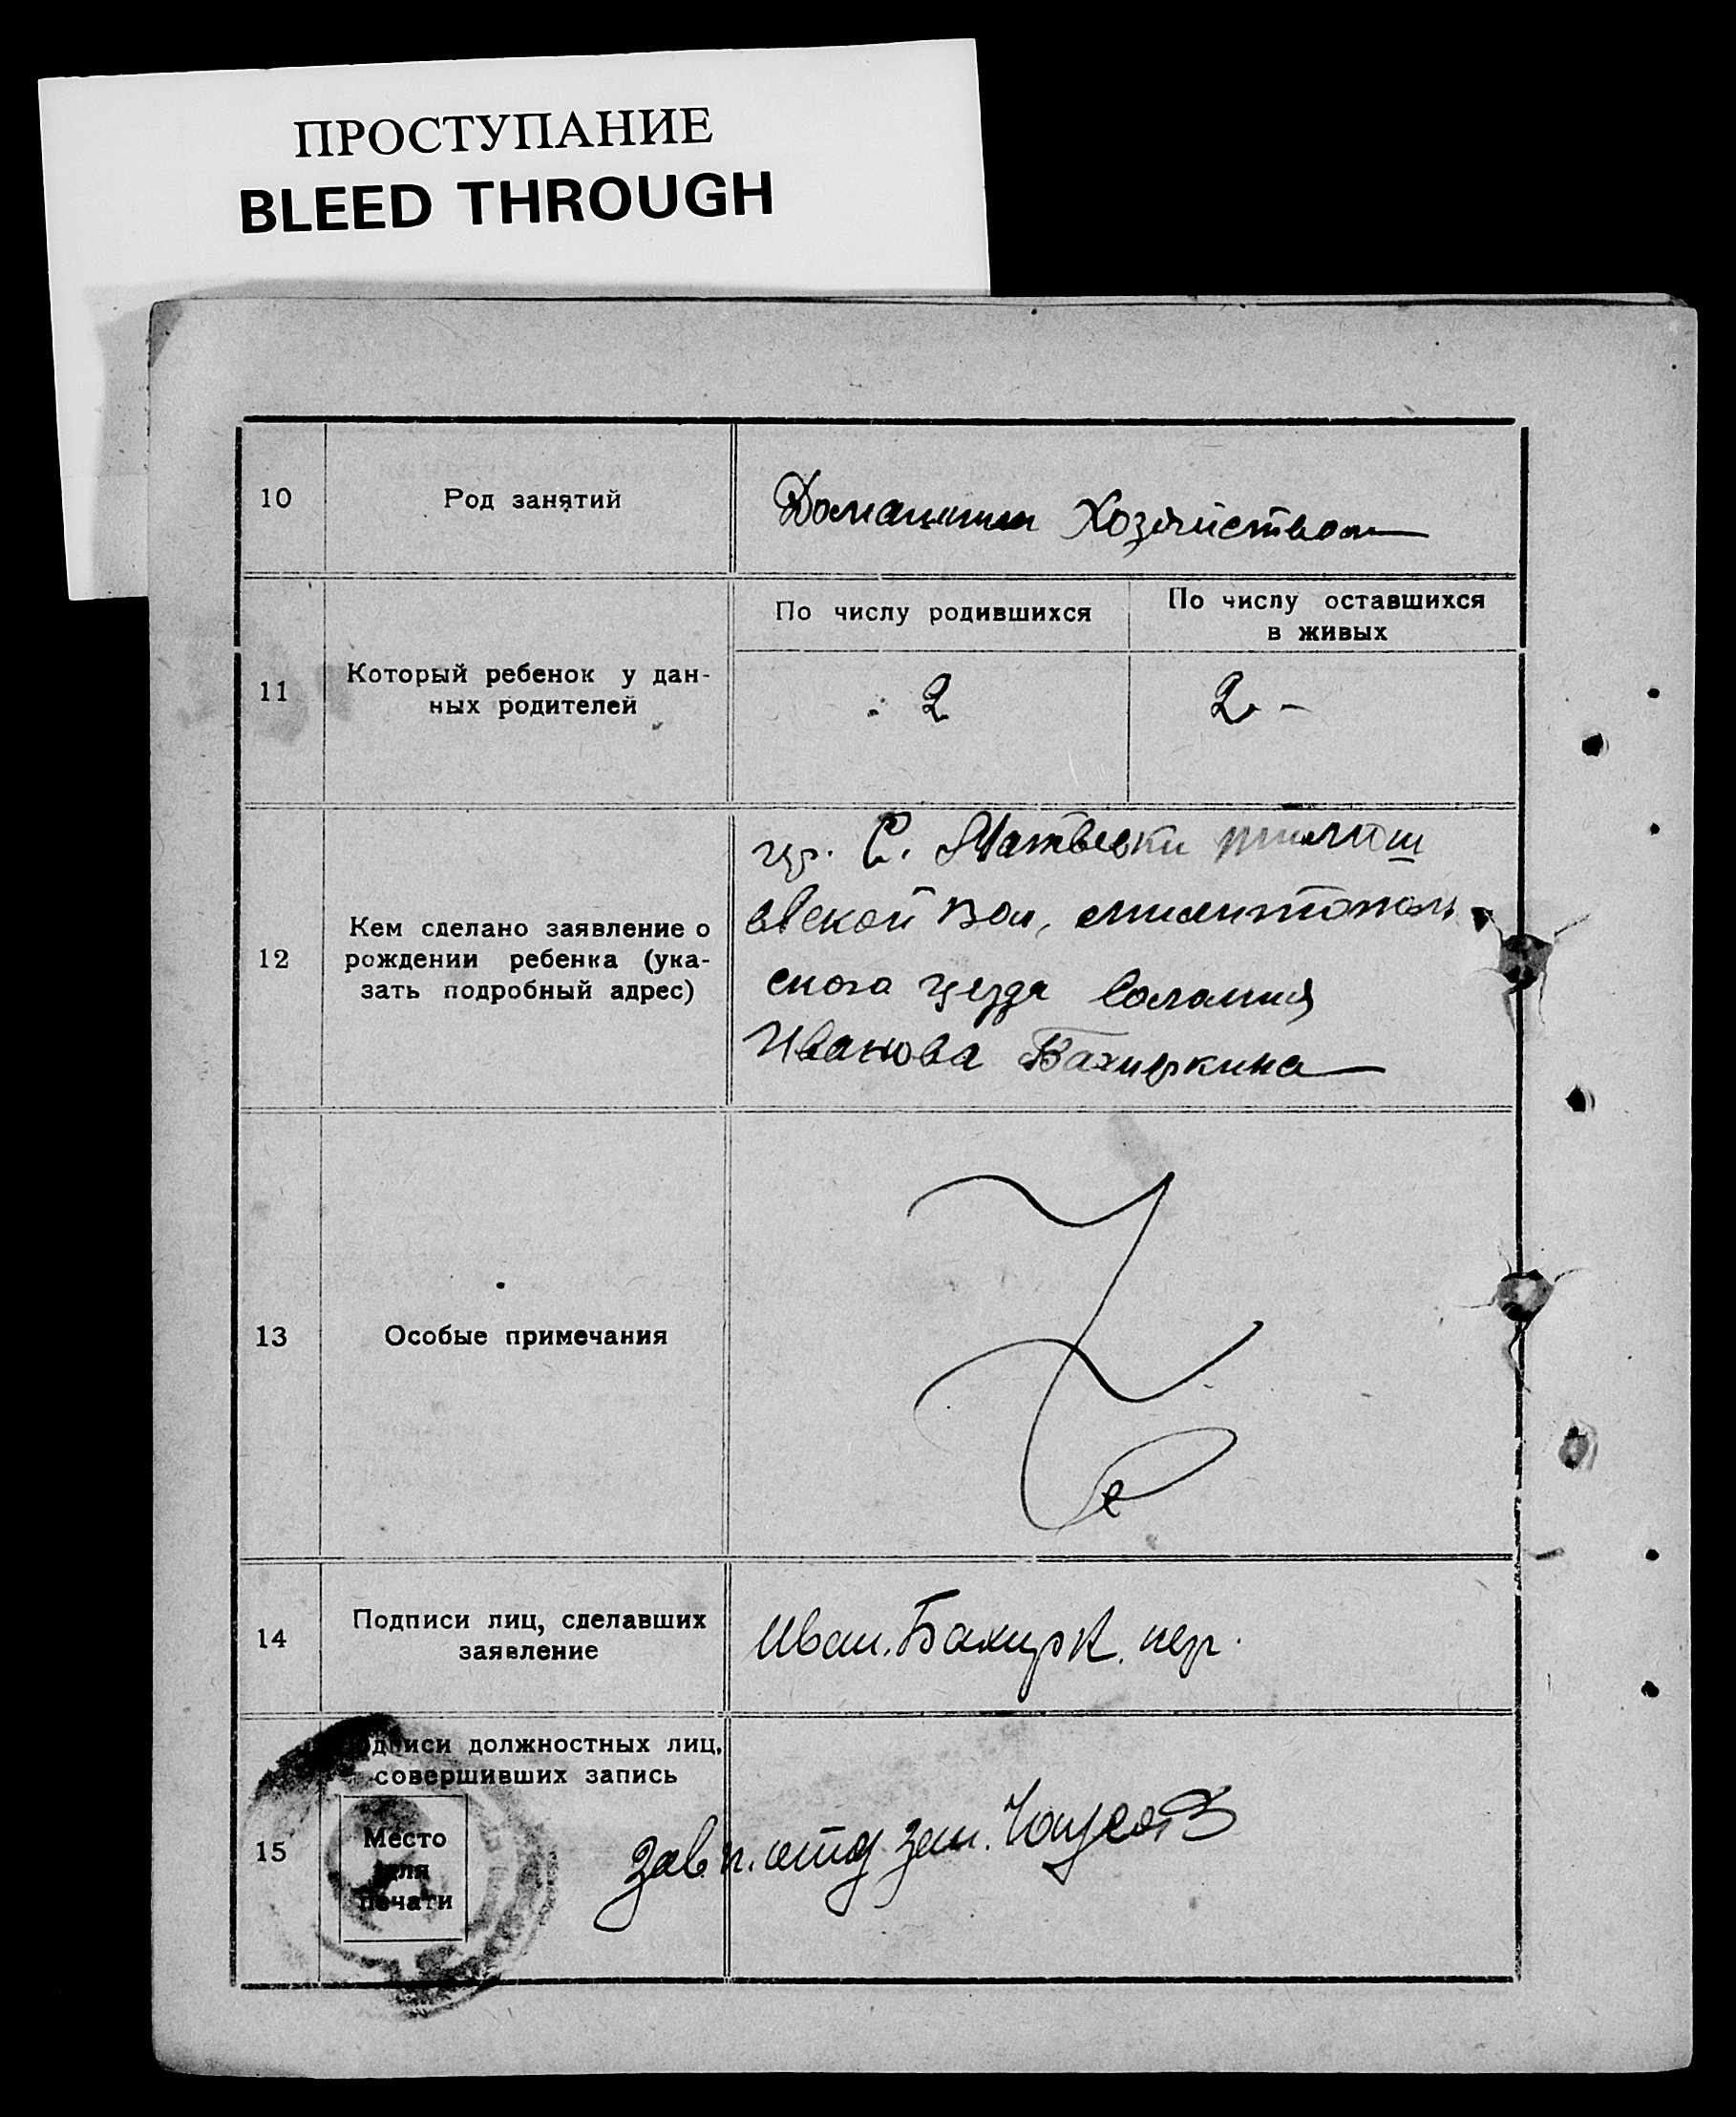 ПРОСТУПАНИЕ
BLEED THROUGH
10
Род занятий
Домашним Хозяйством
11
Который ребенок у дан-
ных родителей
По числу родившихся
По числу оставшихся
в живых
2
2 -
12
Кем сделано заявление о
рождении ребенка (ука-
зать подробный адрес)
гр. С. Матвевки
вской вол, милитополь
ского уезда Соломия
Иванова Бахиркина
13
Особые примечания
14
Подписи лиц, сделавших
заявление
Иван. Бахирк.
15
Подписи должностных лиц,
совершивших запись
Место
для
печати
Зав п. отд зап.